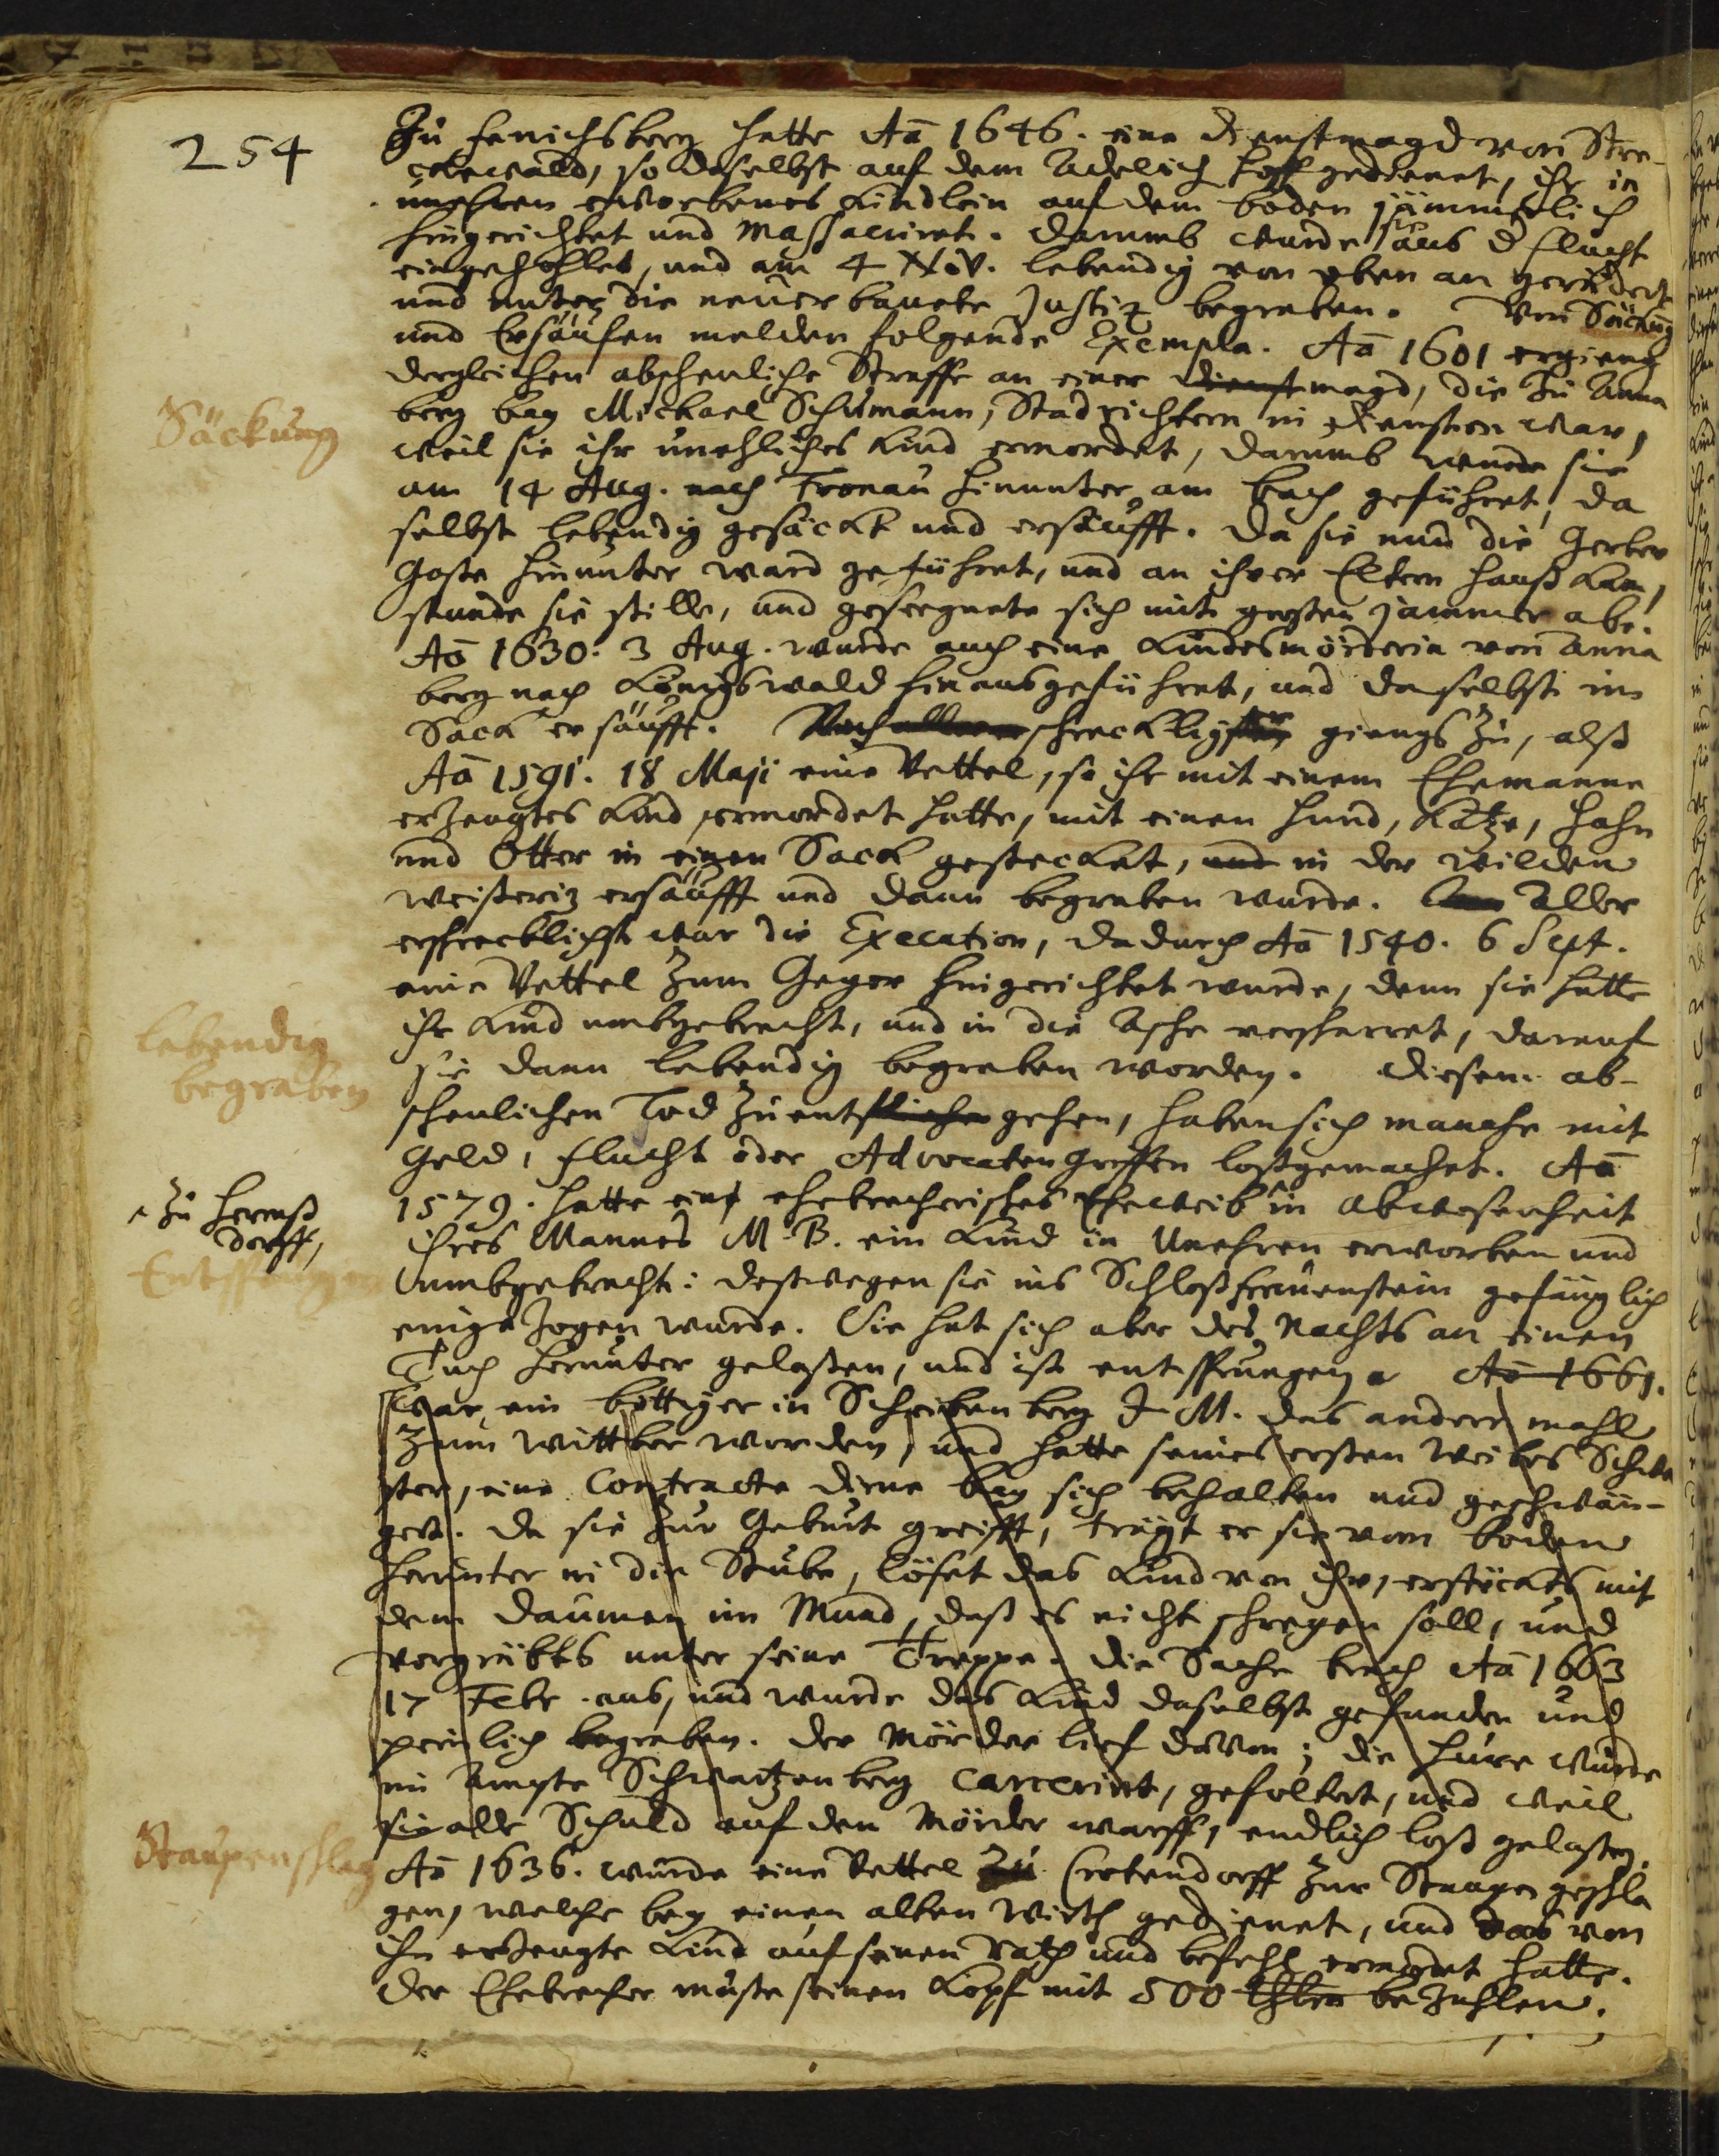 254
Zu Henichsberg hatte Aō 1646. eine Dienstmagd von Stre-
ckewald, so daselbst auf dem Adelich Hoff gedienet, ihr in
unehren erworbenes Kindlein auf dem boden jämmerlich
hingerichtet und Massacriret. Darumb wurde sie aus d flucht
eingeholet, und am 4 Nov. lebendig von oben an gerädert
und unter die neuerbauete Justiz begraben. Von Säckung
und Ersäufen melden folgende Exempla. Aō 1601 ergieng
dergleichen abscheuliche Straffe an einer Dienstmagd, die zu Anna
Säckung
berg bey Michael Schumann, Stadrichtern in Diensten war,
weil sie ihr unehliches Kind ermordet, darumb wurde sie
am 14 Aug. nach Fronau hinunter am bach geführet, da
selbst lebendig gesäckt und ersäufft. Da sie nun die Gerber
Gasse hinunter ward geführet, und an ihrer Eltern hauß kam,
stunde sie stille, und gesegnete sich mit großen jammer abe.
Aō 1630. 3 Aug. wurde auch eine Kindesmörderin von Anna
berg nach Königswald hinausgeführet, und daselbst im
Sack ersäufft. Noch schrecklicher giengs zu, alß
Aō 1591. 18 Maji eine Vettel, so ihr mit einem Ehemanne
erzeugtes Kind ermordet hatte, mit einen Hund, Katze, Hahn
und Otter in einen Sack gestecket, und in der wilden
weißeriz ersäufft und dann begraben wurde. Aller
erschrecklichst war die Execution, dadurch Aō 1540. 6 Sept.
eine Vettel zum Geyer hingerichtet wurde, denn sie hatte
ihr Kind umbgebracht, und in die Asche verscharret, darauf
lebendig
begraben
sie dann lebendig begraben worden. Diesem ab-
scheulichen Tod zu entfliehen gehen, haben sich manche mit
Geld, flucht oder Advocaten Griffen loßgemachet. Aō
zu Hermß
dorff,
1579. hatte ein ehebrecherisches Eheweib in abwesenheit
ihres Mannes M. B. ein Kind in Unehren erworben und
Entsprungen
umbgebracht: deßwegen sie ins Schloß frauenstein gefänglich
eingezogen wurde. Sie hat sich aber des Nachts an einem
Tuch herunter gelaßen, und ist entsprungen. Aō 1661.
war ein böttiger in Scheibenberg J. M. das andere mahl
zum Wittber worden, und hatte seines ersten Weibes Schwe
ster, eine Contracte dirne bey sich behalten und geschwän-
gert. Da sie zur Geburt greifft, trägt er sie vom boden
herunter in die Stube, löset das Kind von ihr, ersteckts mit
dem Daumen im Mund, daß es nicht schreyen soll, und
vergräbts unter seine Treppe. Die Sache brach Aō 1663
17 Febr. aus, und wurde das Kind daselbst gefunden und
peinlich begraben. Der Mörder lief davon; die Hure wurde
im Ampte Schwartzenberg carcerirt, gefoltert, und weil
sie alle Schuld auf den Mörder warff, endlich loß gelaßen.
Staupenschlag
Aō 1636. wurde eine Vettel zu Crotendorff zur Staupen geschla
gen, welche bey einen alten Wirth gedienet, und das von
ihm erzeugte Kind auf seinen Rath und befehl ermordet hatte.
Der Ehebrecher muste seinen Kopf mit 500 thlen bezahlen.